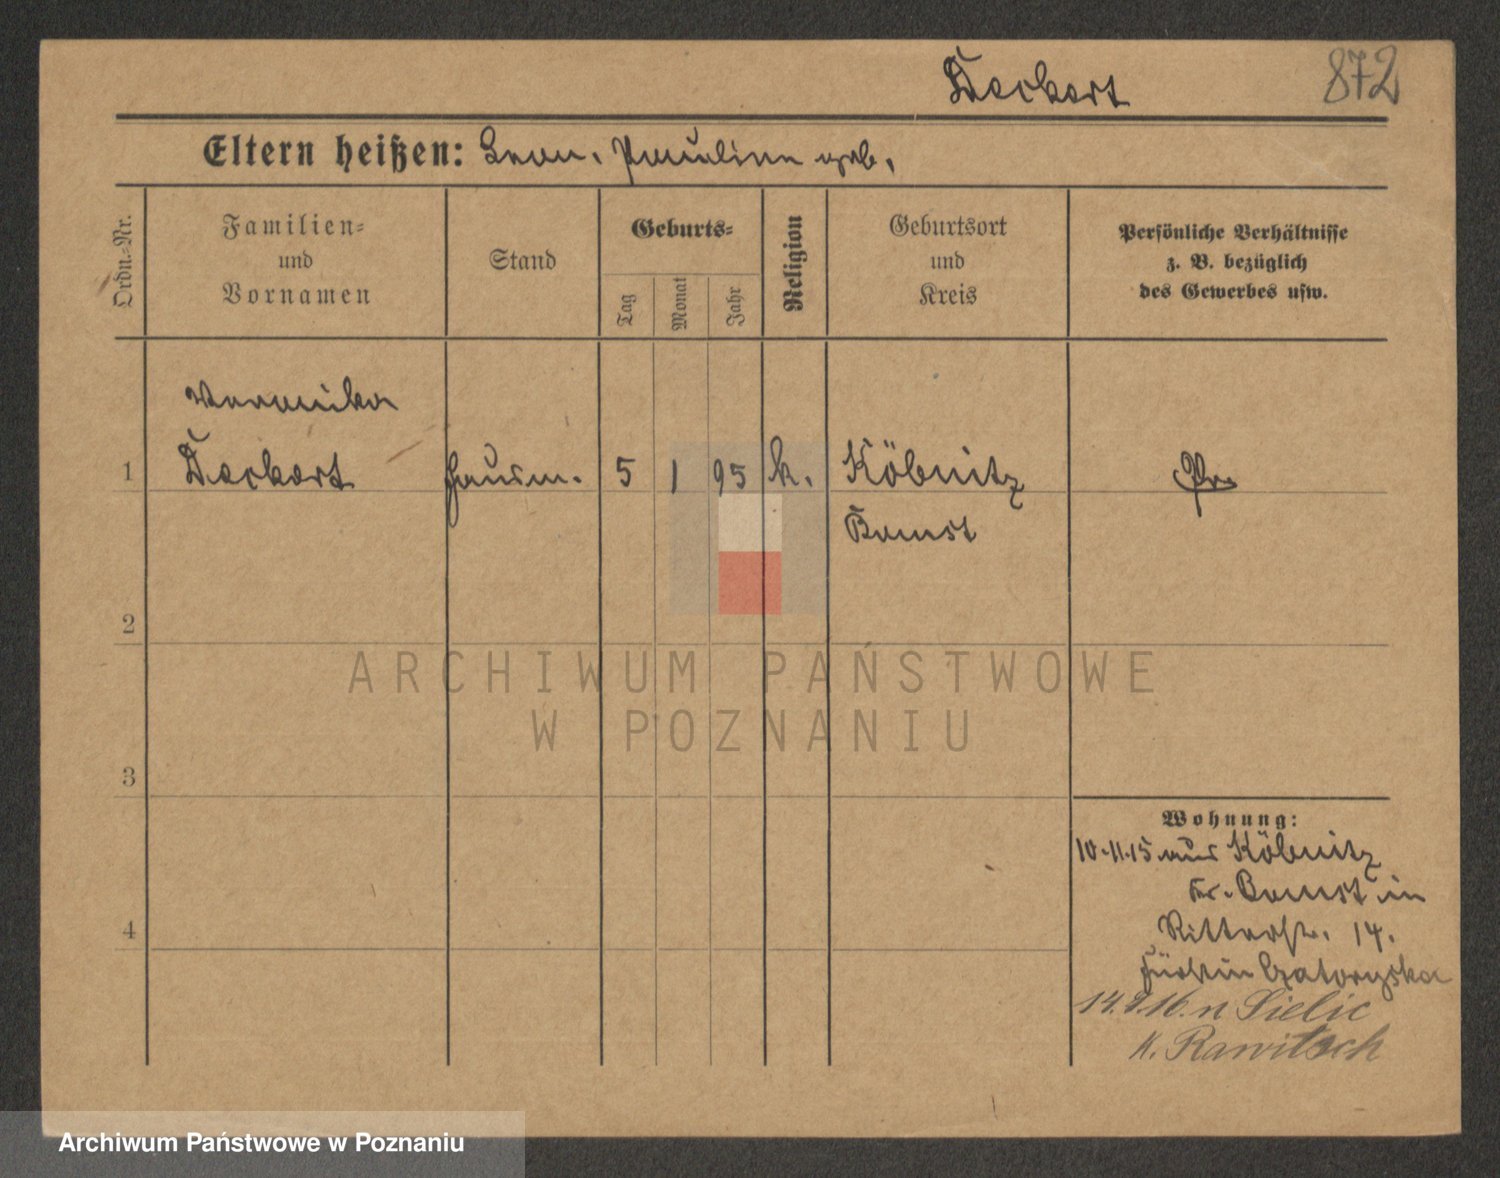 Deckert
872
Eltern heißen: Leon. Paulina geb.
Ordn.-Nr.
Familien-
und
Vornamen
Stand
Geburts-
Tag
Monat
Jahr
Religion
Geburtsort
und
Kreis
Persönliche Verhältnisse
z. B. bezüglich
des Gewerbes usw.
Veronika
1 Deckert Hausm. 5 1 95 k. Köbnitz Pr
Bomst
2
ARCHIWUM PAŃSTWOWE
W POZNANIU
3
Wohnung:
10.11.15 aus Köbnitz
Kr. Bomst in
4
Ritterstr. 14.
Fürstin Czatoryska
14.9.16. n Sielic
K. Rawitsch
Archiwum Państwowe w Poznaniu